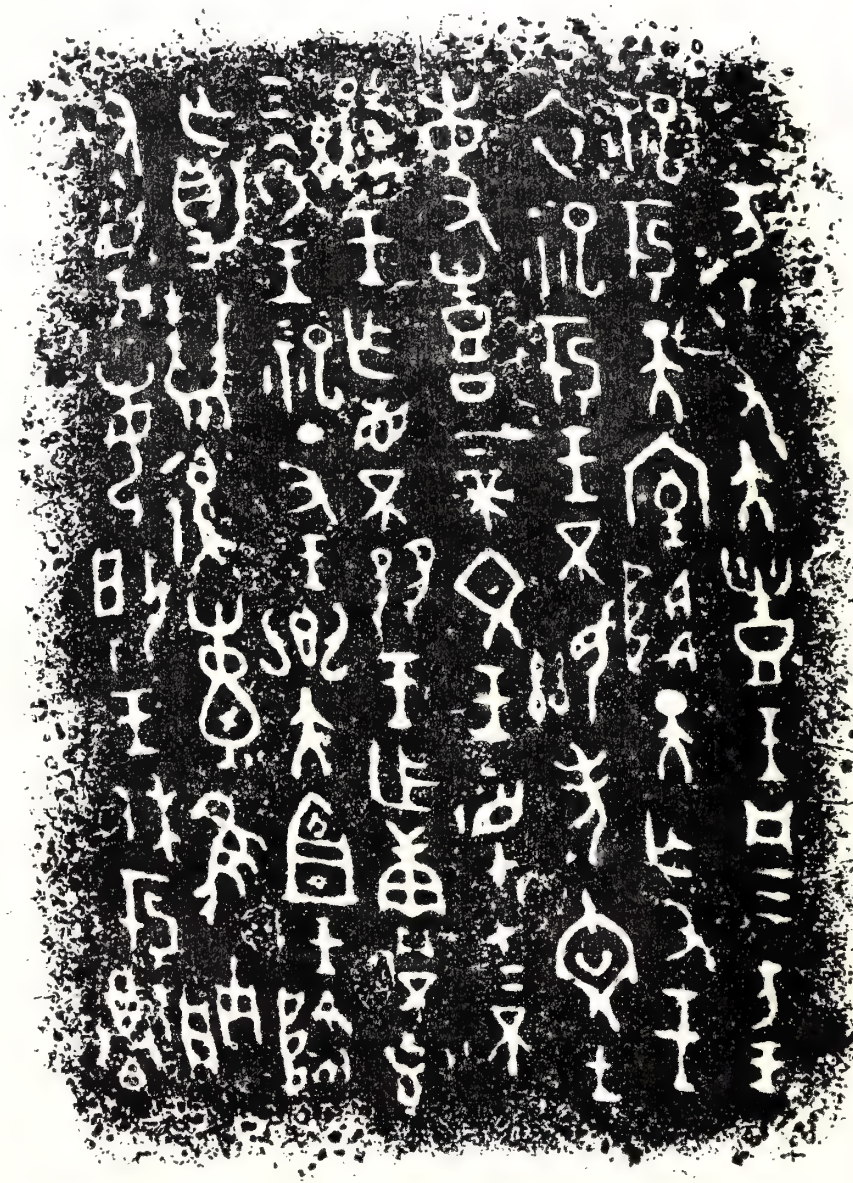 亥王又大豊王凡三方王
祀于天室降天亡又王
衣祀于王不顯考文王
事喜上帝文王監才上不
顯王乍省不王乍不克
乞衣王祀丁丑王鄉大宜王降
亡爵隹朕
又王休于